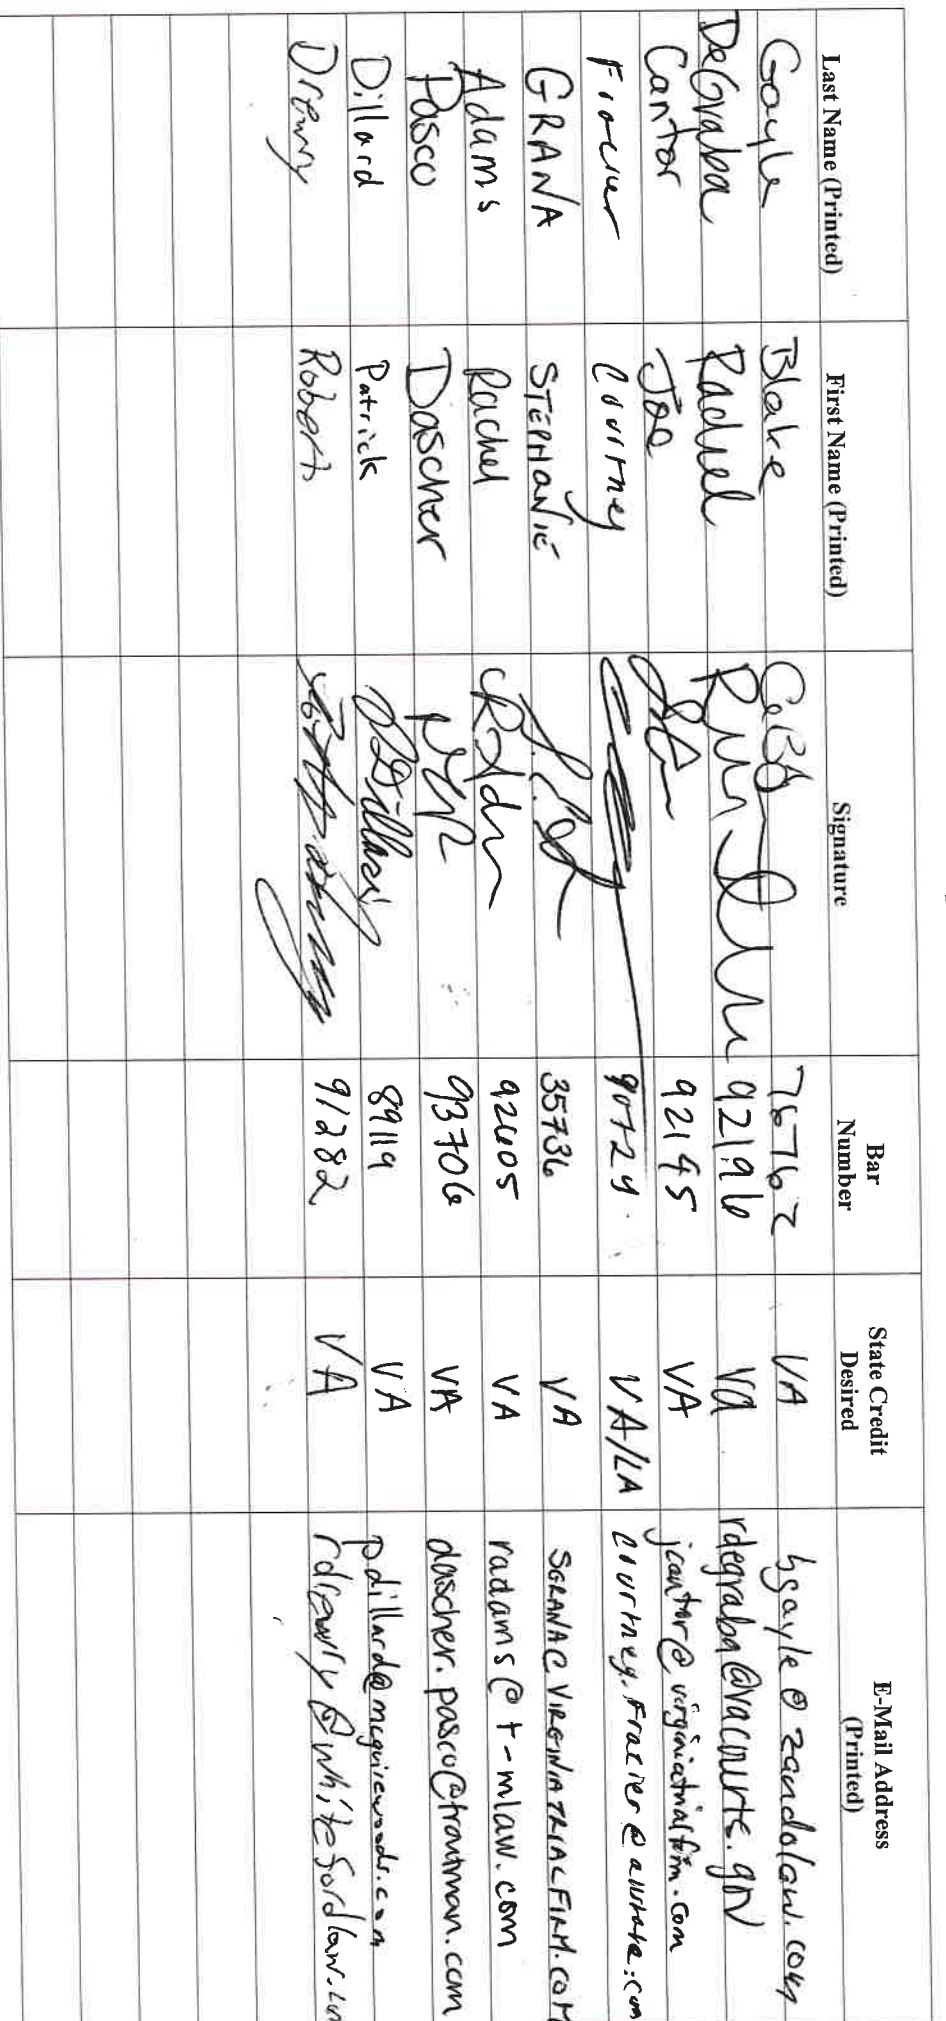 Last Name (Printed) First Name (Printed) Signature Bar Number State Credit Desired E-Mail Address (Printed)
Gayle Blake 76762 VA bgayle@zandolaw.com
DeGraba Rachel 92196 Va rdegraba@vacourts.gov
Cantor Joe 92145 VA jcantor@virginiatrialfirm.com
Frazier Courtney 90724 VA/LA
GRANA STEPHANIE 35736 VA SGRANA@VIRGINIATRIALFIRM.COM
Adams Rachel 92605 VA radams@t-mlaw.com
Pasco Dascher 93706 VA dascher.pasco@troutman.com
Dillard Patrick PDillard 89119 VA pdillard@mcguirewoods.com
Drewry Robert 91282 VA rdrewry@whitefordlaw.com